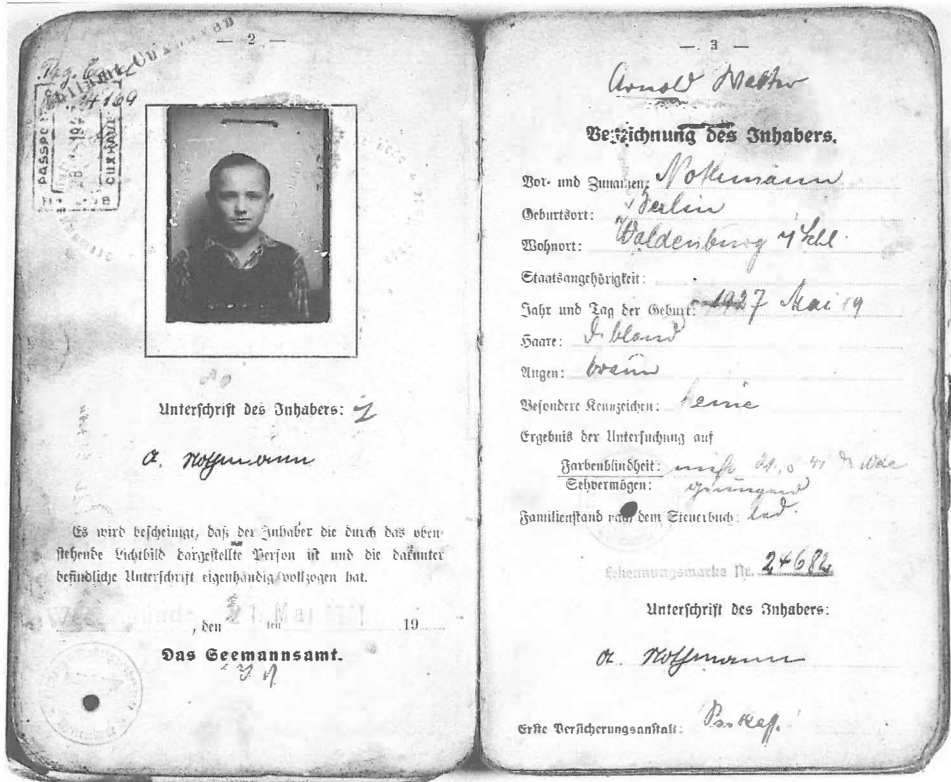 — 2 —
Zollamt Cuxhaven
4169
PASSPORT
28
19
CUXHAV
Unterschrift des Inhabers:
A. Nothmann
Es wird bescheinigt, daß der Inhaber die durch das oben-
stehende Lichtbild dargestellte Person ist und die darunter
befindliche Unterschrift eigenhändig vollzogen hat.
, den 21. Mai 19
Das Seemannsamt.
— 3 —
Arnold Walter
Bezeichnung des Inhabers.
Vor- und Zunamen: Nothmann
Geburtsort: Berlin
Wohnort: Waldenburg
Staatsangehörigkeit:
Jahr und Tag der Geburt: 1927 Mai 19
Haare: d. blond
Augen: braun
Besondere Kennzeichen: keine
Ergebnis der Untersuchung auf
Farbenblindheit:
Sehvermögen: genügend
Familienstand nach dem Steuerbuch: led.
Erkennungsmarke Nr. 24682
Unterschrift des Inhabers:
A. Nothmann
Erste Versicherungsanstalt: